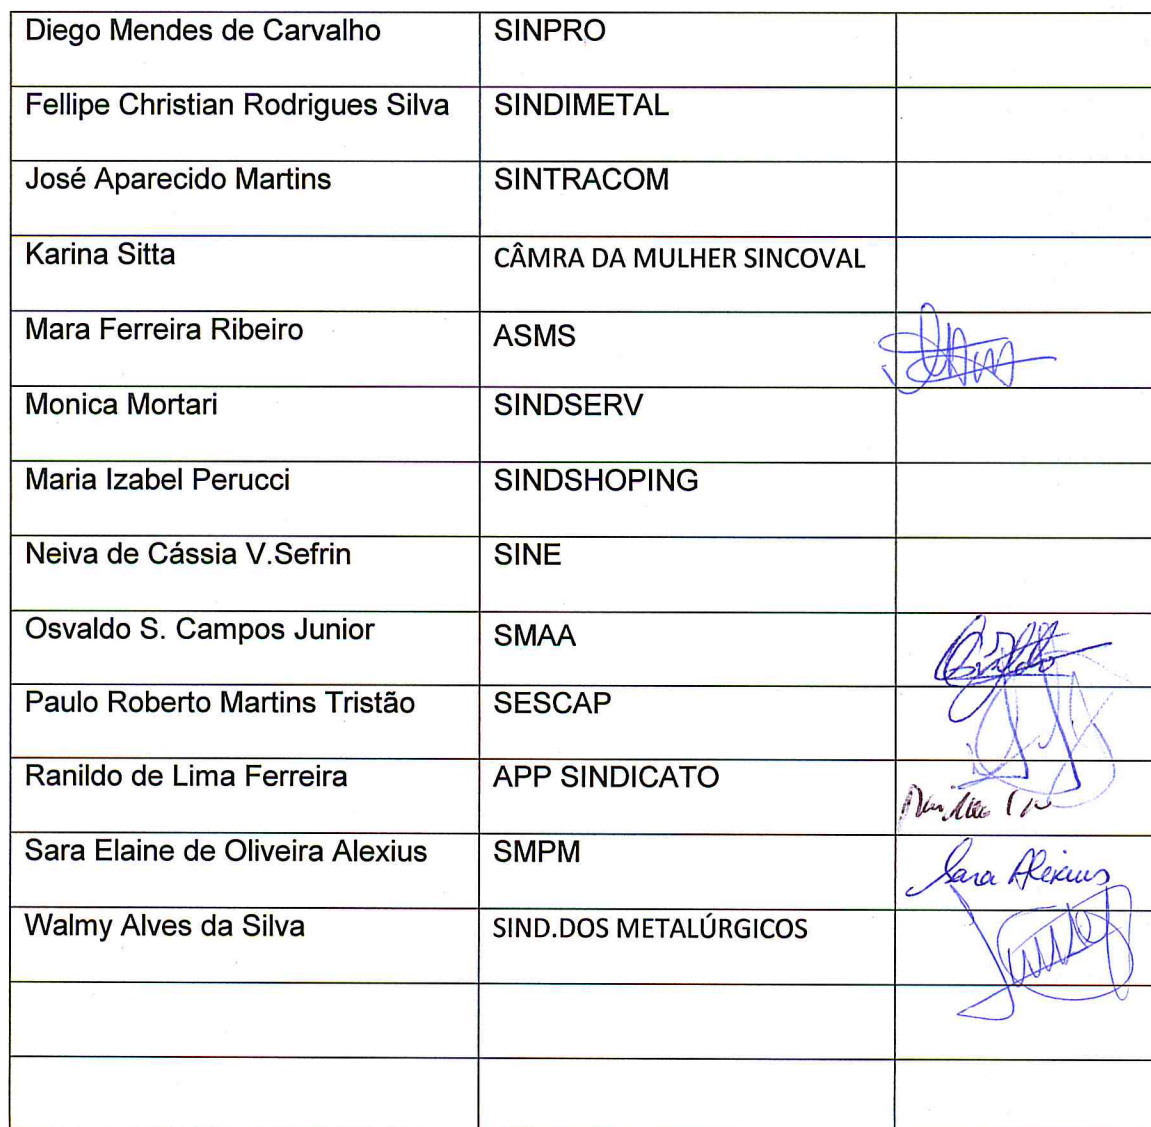 Diego Mendes de Carvalho SINPRO
Fellipe Christian Rodrigues Silva SINDIMETAL
José Aparecido Martins SINTRACOM
Karina Sitta CÂMRA DA MULHER SINCOVAL
Mara Ferreira Ribeiro ASMS
Monica Mortari SINDSERV
Maria Izabel Perucci SINDSHOPING
Neiva de Cássia V.Sefrin SINE
Osvaldo S. Campos Junior SMAA
Paulo Roberto Martins Tristão SESCAP
Ranildo de Lima Ferreira APP SINDICATO
Sara Elaine de Oliveira Alexius SMPM Sara Alexius
Walmy Alves da Silva SIND.DOS METALÚRGICOS